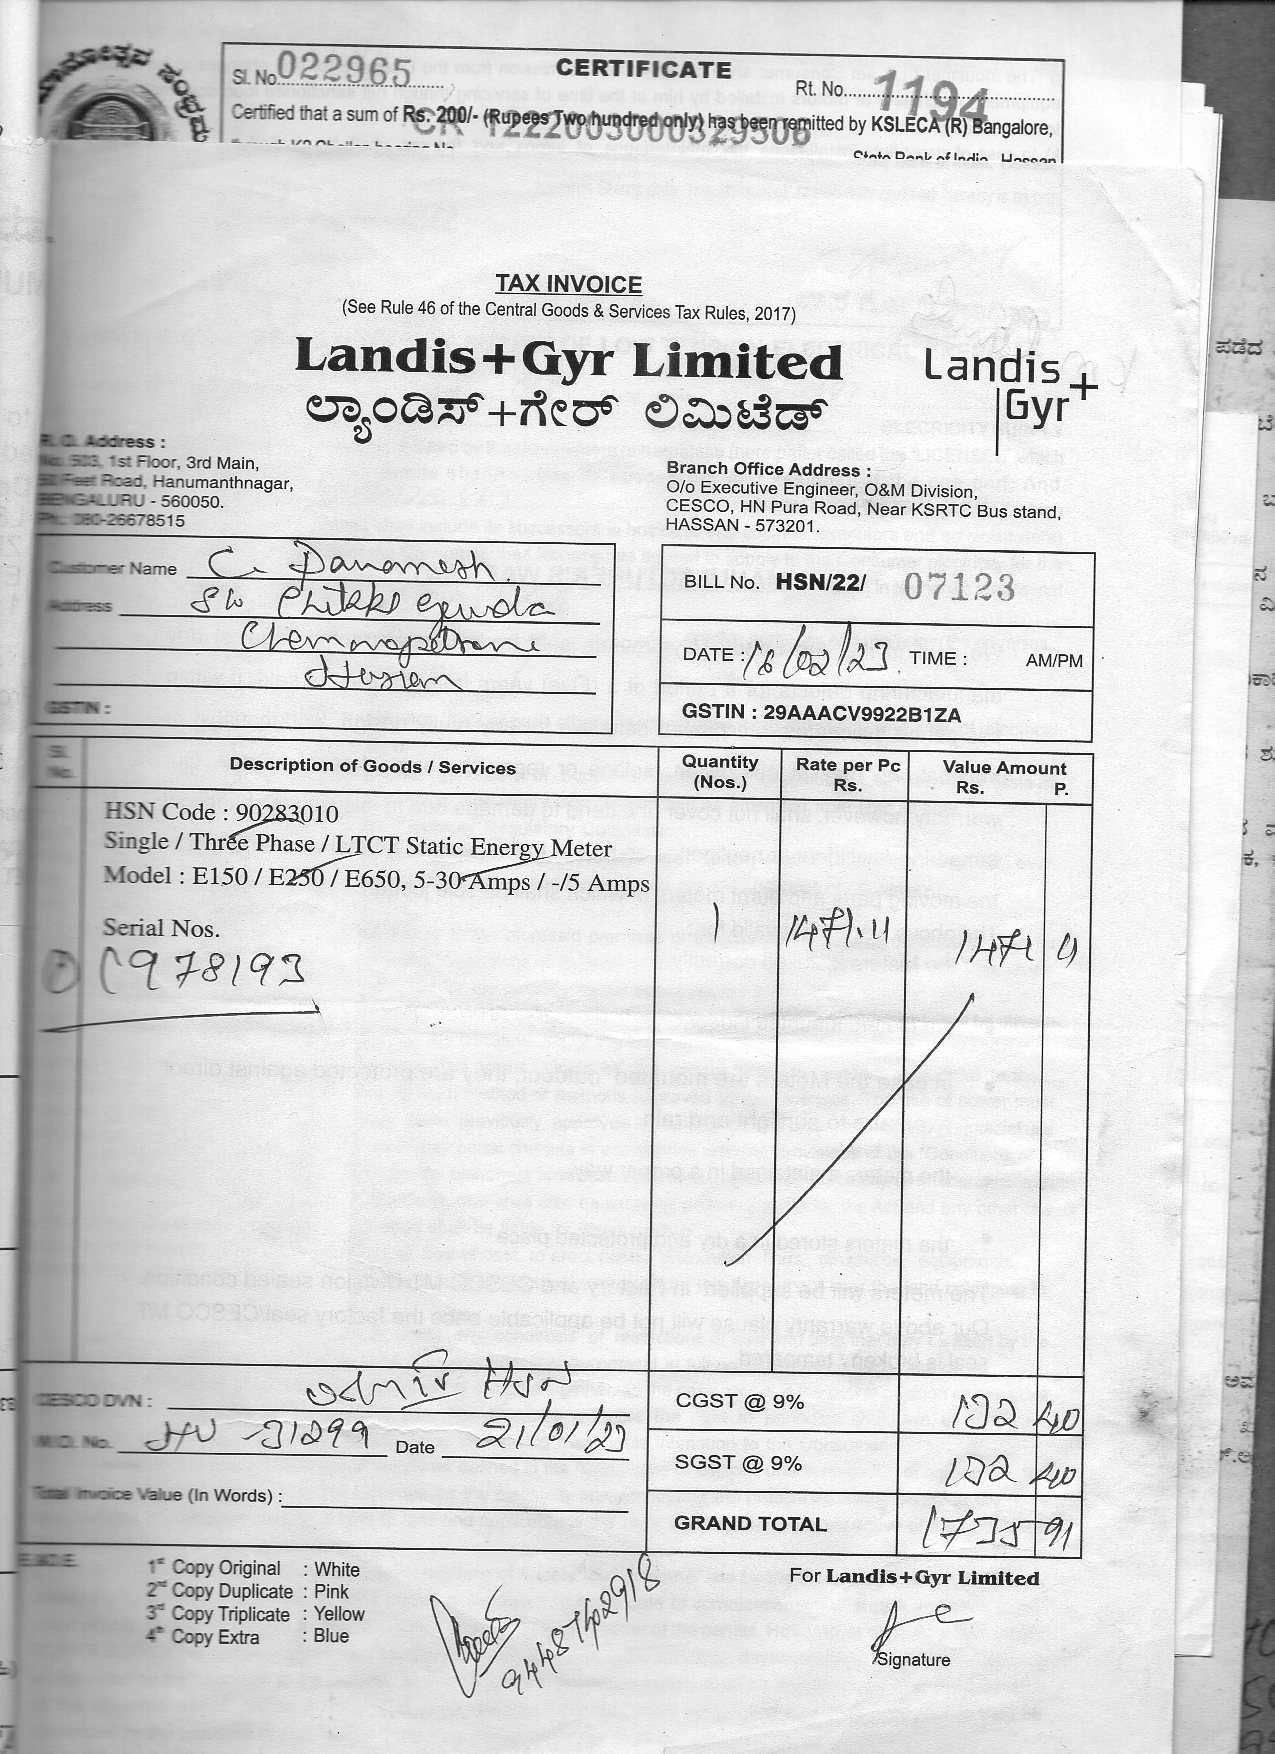 Sl. No. 022965
CERTIFICATE
Rt. No. 1194
Certified that a sum of Rs. 200/- (Rupees Two hundred only) has been remitted by KSLECA (R) Bangalore,
CR 1222003000329506
State Bank of India, Hassan
TAX INVOICE
(See Rule 46 of the Central Goods & Services Tax Rules, 2017)
Landis+Gyr Limited
ಲ್ಯಾಂಡಿಸ್+ಗೇರ್ ಲಿಮಿಟೆಡ್
Landis+
Gyr
R. O. Address :
No. 503, 1st Floor, 3rd Main,
50 Feet Road, Hanumanthnagar,
BENGALURU - 560050.
Ph.: 080-26678515
Branch Office Address :
O/o Executive Engineer, O&M Division,
CESCO, HN Pura Road, Near KSRTC Bus stand,
HASSAN - 573201.
Customer Name C.
Address S/o
GSTIN :
BILL No. HSN/22/ 07123
DATE : 16/02/23 TIME : AM/PM
GSTIN : 29AAACV9922B1ZA
Sl. No.
Description of Goods / Services
Quantity (Nos.)
Rate per Pc Rs.
Value Amount Rs. P.
HSN Code : 90283010
Single / Three Phase / LTCT Static Energy Meter
Model : E150 / E250 / E650, 5-30 Amps / -/5 Amps
Serial Nos.
1 1471.11 1471 11
978193
CESCO DVN : HSN
CGST @ 9% 132 40
W.O. No. 31299 Date 21/01/23
SGST @ 9% 132 40
Total Invoice Value (In Words) :
GRAND TOTAL 1735 91
E.&O.E.
1st Copy Original : White
2nd Copy Duplicate : Pink
3rd Copy Triplicate : Yellow
4th Copy Extra : Blue
9448742918
For Landis+Gyr Limited
Signature